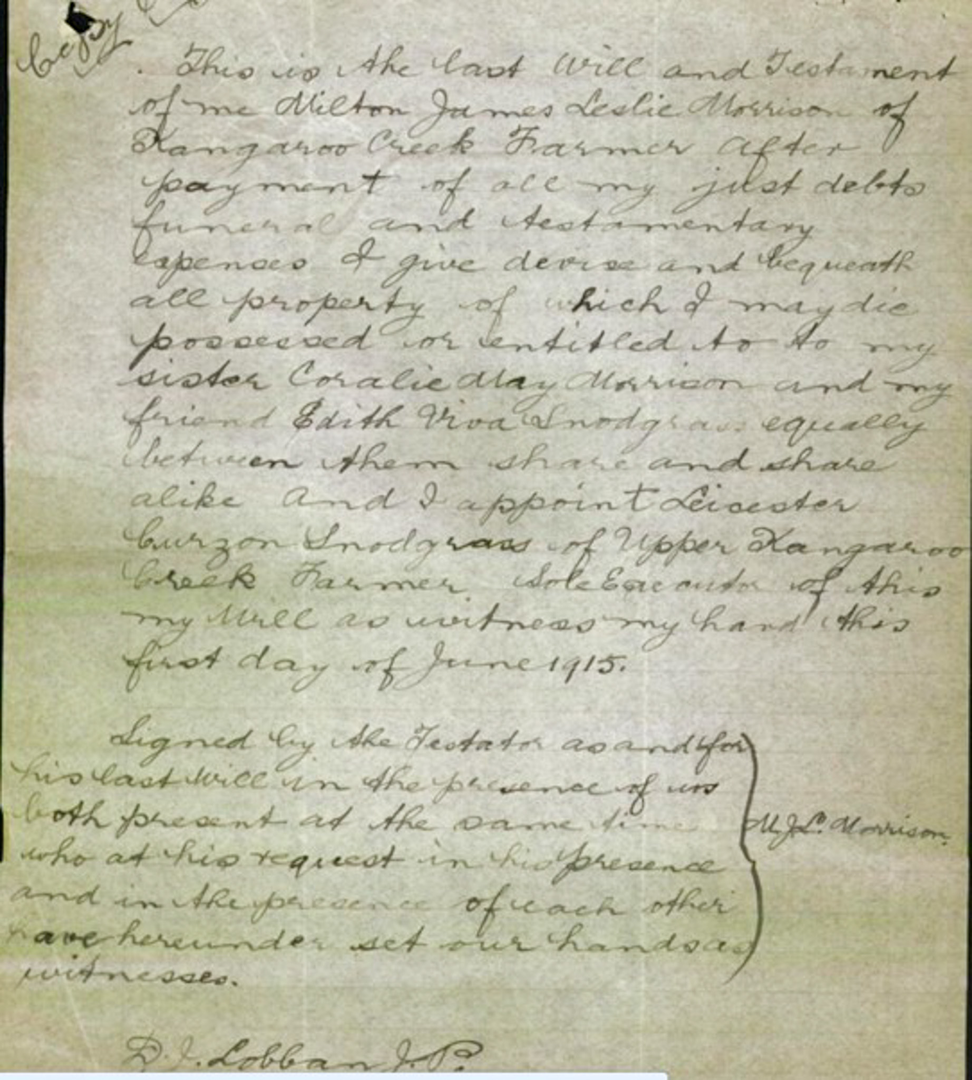 Copy
This is the last Will and Testament
of me Milton James Leslie Morrison of
Kangaroo Creek Farmer After
payment of all my just debts
funeral and testamentary
expenses I give devise and bequeath
all property of which I may die
possessed or entitled to to my
sister Coralie May Morrison and my
friend Edith Viva Snodgrass equally
between them share and share
alike and I appoint Leicester
Curzon Snodgrass of Upper Kangaroo
Creek Farmer Sole Executor of this
my Will as witness my hand this
first day of June 1915.
Signed by the Testator as and for
his last Will in the presence of us
both present at the same time
who at his request in his presence
and in the presence of each other
have hereunder set our hands as
witnesses.
M.J.L. Morrison.
D. J. Lobban J.P.